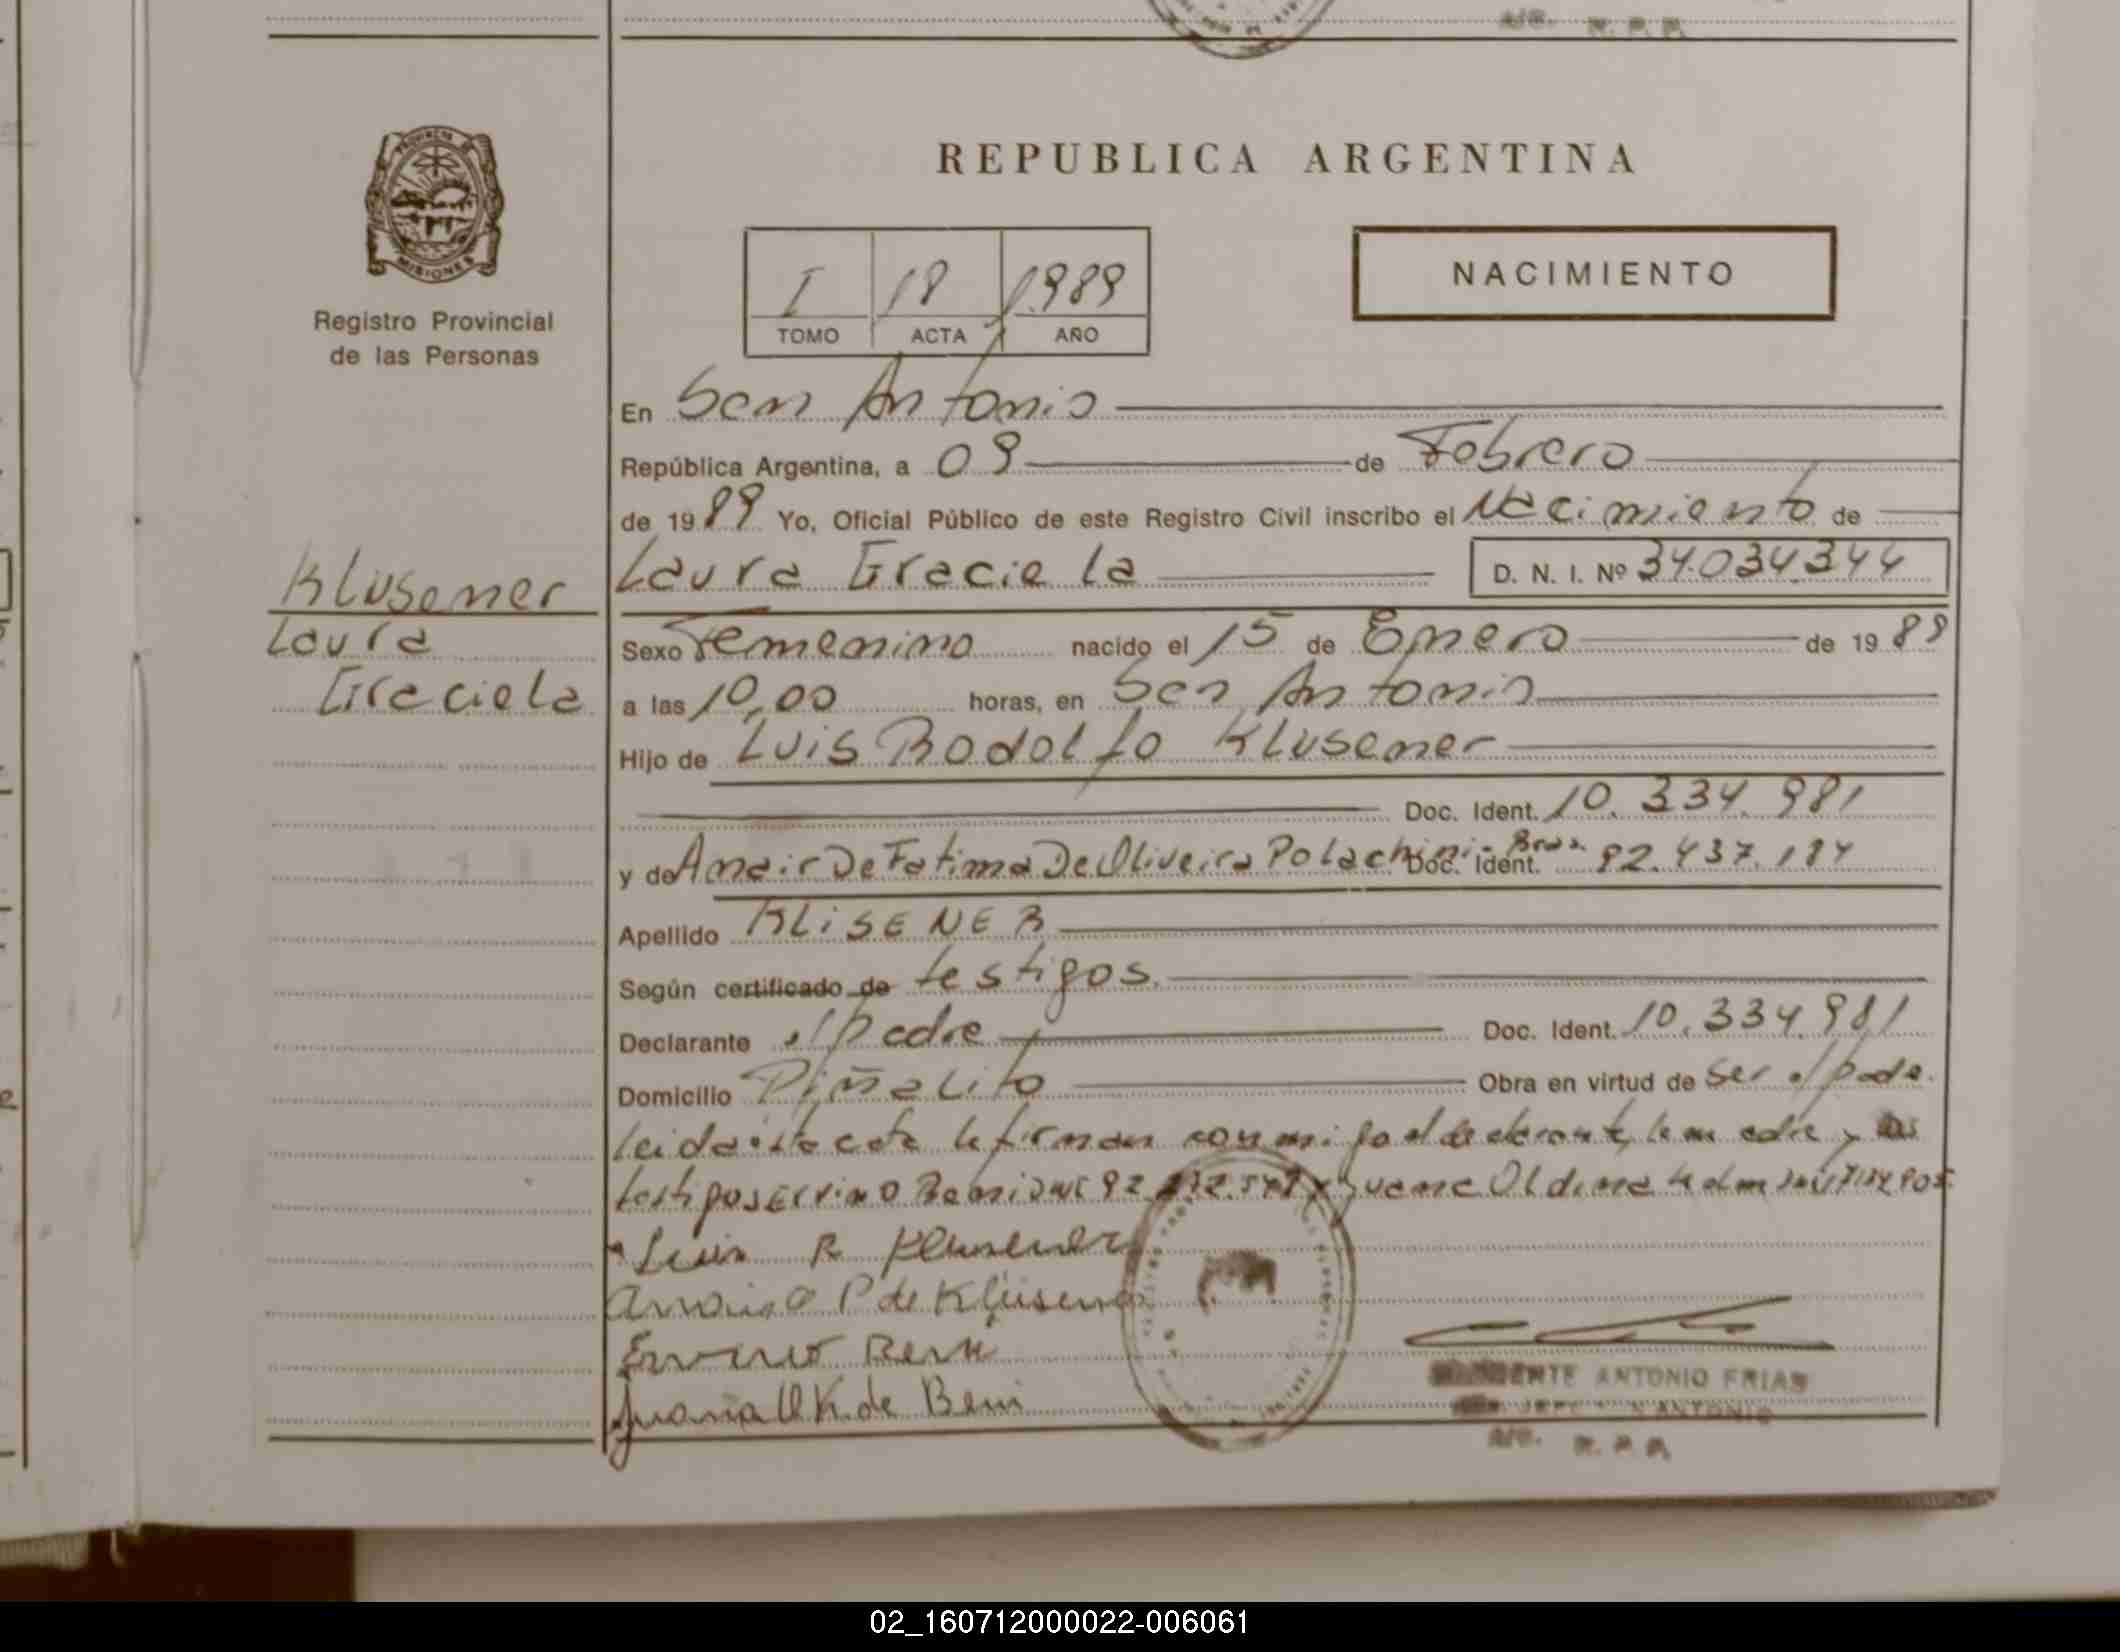 REPUBLICA ARGENTINA
PROVINCIA DE
MISIONES
Registro Provincial
de las Personas
I 18 1989
TOMO ACTA AÑO
NACIMIENTO
En San Antonio
República Argentina, a 09 de Febrero
de 1989 Yo, Oficial Público de este Registro Civil inscribo el Nacimiento de
Klusener
Laura Graciela D. N. I. Nº 34.034.344
Laura
Graciela
Sexo Femenino nacido el 15 de Enero de 1989
a las 10,00 horas, en San Antonio
Hijo de Luis Rodolfo Klusener
Doc. Ident. 10.334.981
y de Anair De Fatima De Oliveira Polachini - Bras. Doc. Ident. 92.437.184
Apellido KLiSENER
Según certificado de testigos.
Declarante el padre Doc. Ident. 10.334.981
Domicilio Piñalito Obra en virtud de ser el padre.
Leida esta acta la firman conmigo el declarante, la madre y los
testigos Ervino Beni DNI 92. y Juana
Luis R Klusener
P de Klüsener
Ervino Beni
Juana O K. de Beni
ANTONIO FRIAS
A/C. R. P. P.
02_160712000022-006061